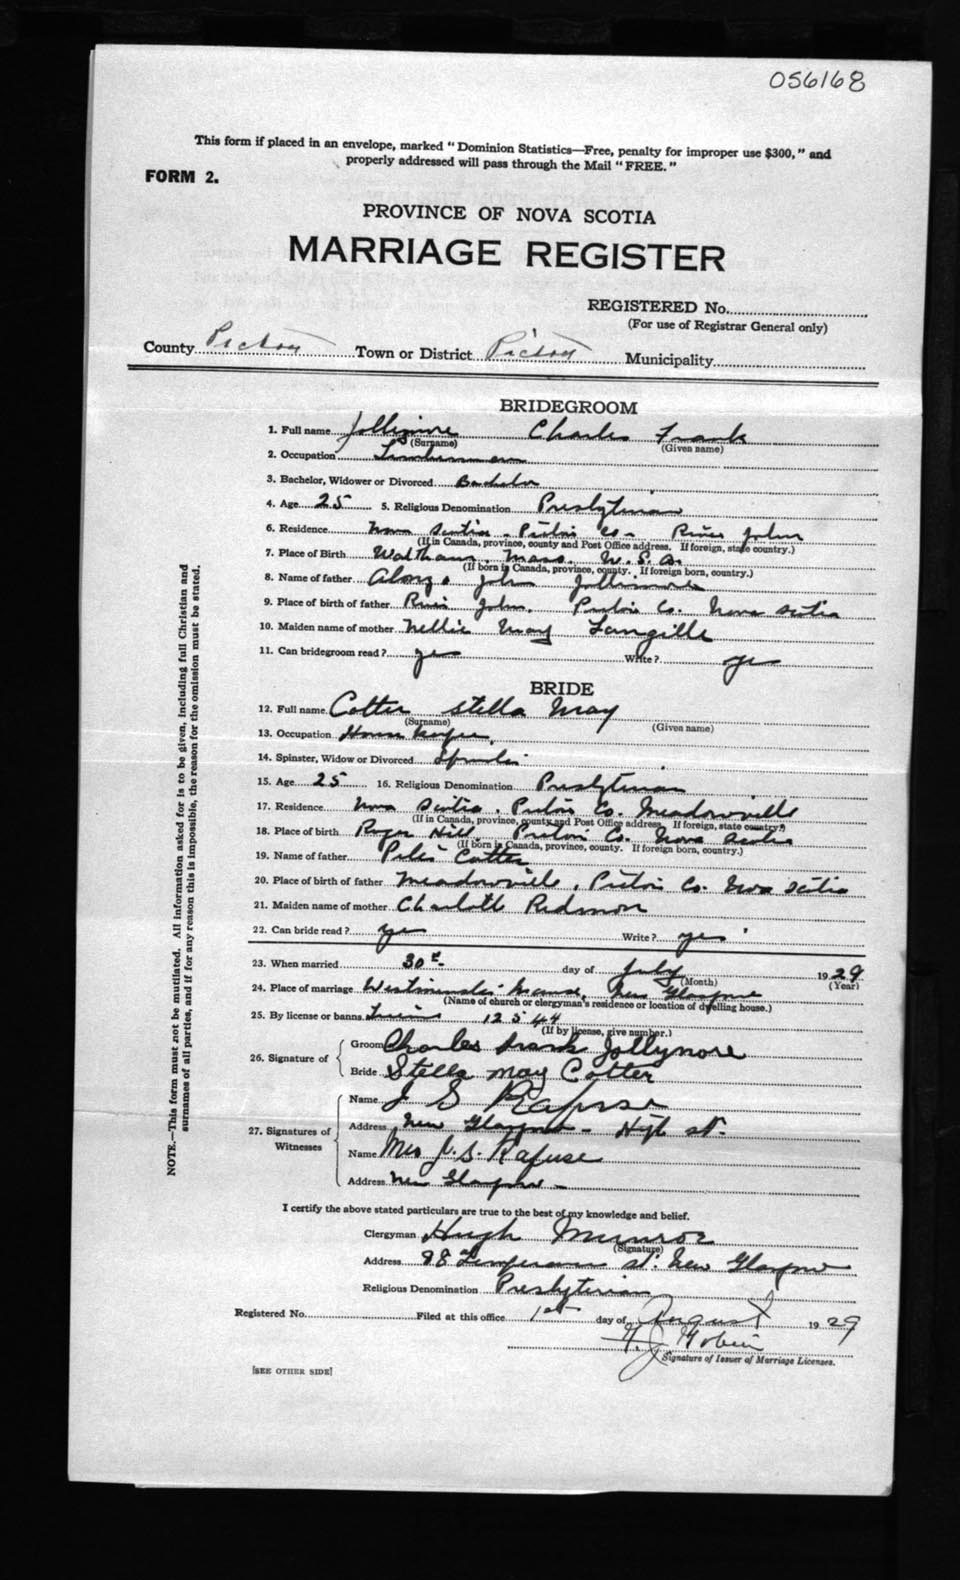 056168
This form if placed in an envelope, marked "Dominion Statistics—Free, penalty for improper use $300," and
properly addressed will pass through the Mail "FREE."
FORM 2.
PROVINCE OF NOVA SCOTIA
MARRIAGE REGISTER
REGISTERED No.
(For use of Registrar General only)
County Pictou Town or District Pictou Municipality
BRIDEGROOM
1. Full name Jollimore Charles Frank
(Surname) (Given name)
2. Occupation Lumberman
3. Bachelor, Widower or Divorced Bachelor
4. Age 25 5. Religious Denomination Presbyterian
6. Residence Nova Scotia. Pictou Co. River John
(If in Canada, province, county and Post Office address. If foreign, state country.)
7. Place of Birth Waltham Mass. U.S.A.
(If born in Canada, province, county. If foreign born, country.)
8. Name of father Alonzo John Jollimore
9. Place of birth of father River John, Pictou Co. Nova Scotia
10. Maiden name of mother Nellie May Langille
11. Can bridegroom read? yes Write? yes
BRIDE
12. Full name Cotter Stella May
(Surname) (Given name)
13. Occupation House keeper,
14. Spinster, Widow or Divorced Spinster
15. Age 25 16. Religious Denomination Presbyterian
17. Residence Nova Scotia. Pictou Co. Meadowville
(If in Canada, province, county and Post Office address. If foreign, state country.)
18. Place of birth Roger Hill Pictou Co. Nova Scotia
(If born in Canada, province, county. If foreign born, country.)
19. Name of father Peter Cotter
20. Place of birth of father Meadowville, Pictou Co. Nova Scotia
21. Maiden name of mother Charlotte Redmon
22. Can bride read? yes Write? yes
23. When married 30th day of July 1929
(Month) (Year)
24. Place of marriage Westminster Manse, New Glasgow
(Name of church or clergyman's residence or location of dwelling house.)
25. By license or banns 12544
(If by license, give number.)
26. Signature of Groom Charles Frank Jollymore
Bride Stella May Cotter
27. Signatures of Witnesses
Name J S Rafuse
Address New Glasgow - High St.
Name Mrs J. S. Rafuse
Address New Glasgow -
I certify the above stated particulars are true to the best of my knowledge and belief.
Clergyman Hugh Munroe
(Signature)
Address 98 Temperance St. New Glasgow
Religious Denomination Presbyterian
Registered No. Filed at this office 1st day of August 1929
Signature of Issuer of Marriage Licenses.
[SEE OTHER SIDE]
NOTE.—This form must not be mutilated. All information asked for is to be given, including full Christian and
surnames of all parties, and if for any reason this is impossible, the reason for the omission must be stated.